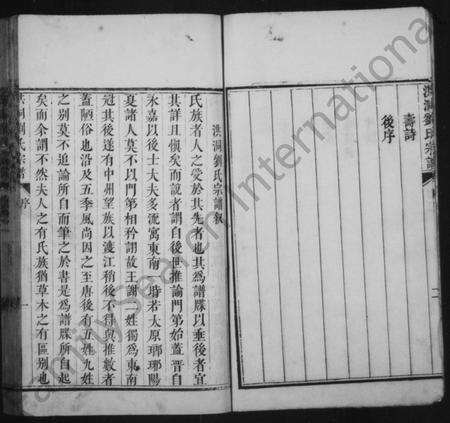 洪洞劉氏宗譜
壽詩
後序
二
洪洞劉氏宗譜叙
氏族者人之受於其先者也其爲譜牒以垂後者宜
其詳且愼矣而說者謂自後世推論門第始蓋晉自
永嘉以後士大夫多流寓東南一時若太原瑯琊陽
夏諸人莫不以門第相矜詡故王謝二姓獨爲東南
冠其後遂有中州望族以渡江稍後不得與推數者
蓋陋俗也沿及五季風尚因之至唐後有五姓九姓
之别莫不追論所自而筆之於書是爲譜牒所自起
矣而余謂不然夫人之有氏族猶草木之有區别也
洪洞劉氏宗譜
序
一
FamilySearch International